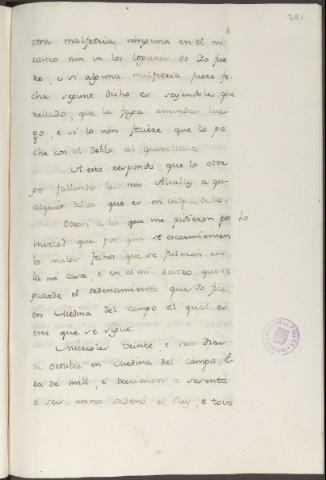 281
otra malfetria ninguna en el mi
rastro nin en los logares do Yo fue
re, e si alguna malfetria fuere fe
cha segunt dicho es seyendole que
rellado, que la faga emendar lue
go, e si lo non ficiere que lo pe
che con el doblo al querelloso
A esto respondo que lo otor
go fallando los mis Alcalles a qu
alquier dellos que es en culpa dello.
Otrosi a lo que me pidieron por
merced que por que se escarmienten
los malos fechos que se ficieren en
la mi casa, e en el mi rastro que se
guarde el ordenamiento que Yo fice
en Medina del campo el qual es
este que se sigue
Miercoles veinte, e seis dias
de octubre en Medina del campo, E
ra de mill, e trecientos, e sesenta
e seis annos ordenó el Rey, e tovo